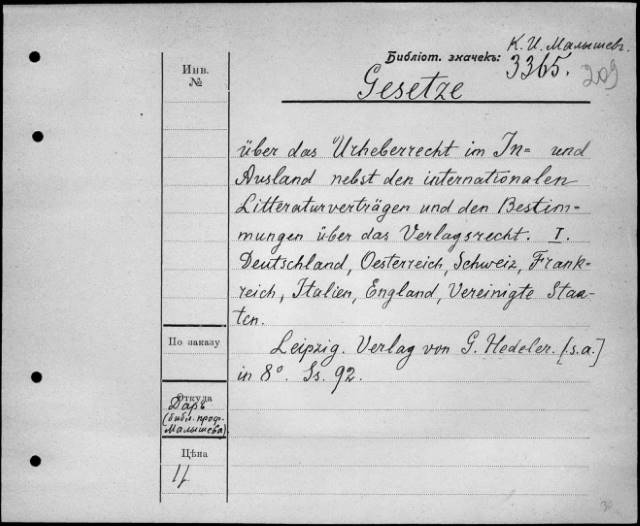 К. И. Малышевъ.
Библіот. значекъ: 3365.
209
Инв.
№
Gesetze
über das Urheberrecht im In= und
Ausland nebst den internationalen
Litteraturverträgen und den Bestim-
mungen über das Verlagsrecht. I.
Deutschland, Oesterreich, Schweiz, Frank-
reich, Italien, England, Vereinigte Staa-
ten.
По заказу
Leipzig. Verlag von G. Hedeler. [s.a.]
in 8°. Ss. 92.
Откуда
Даръ
(библ. проф.
Малышева).
Цѣна